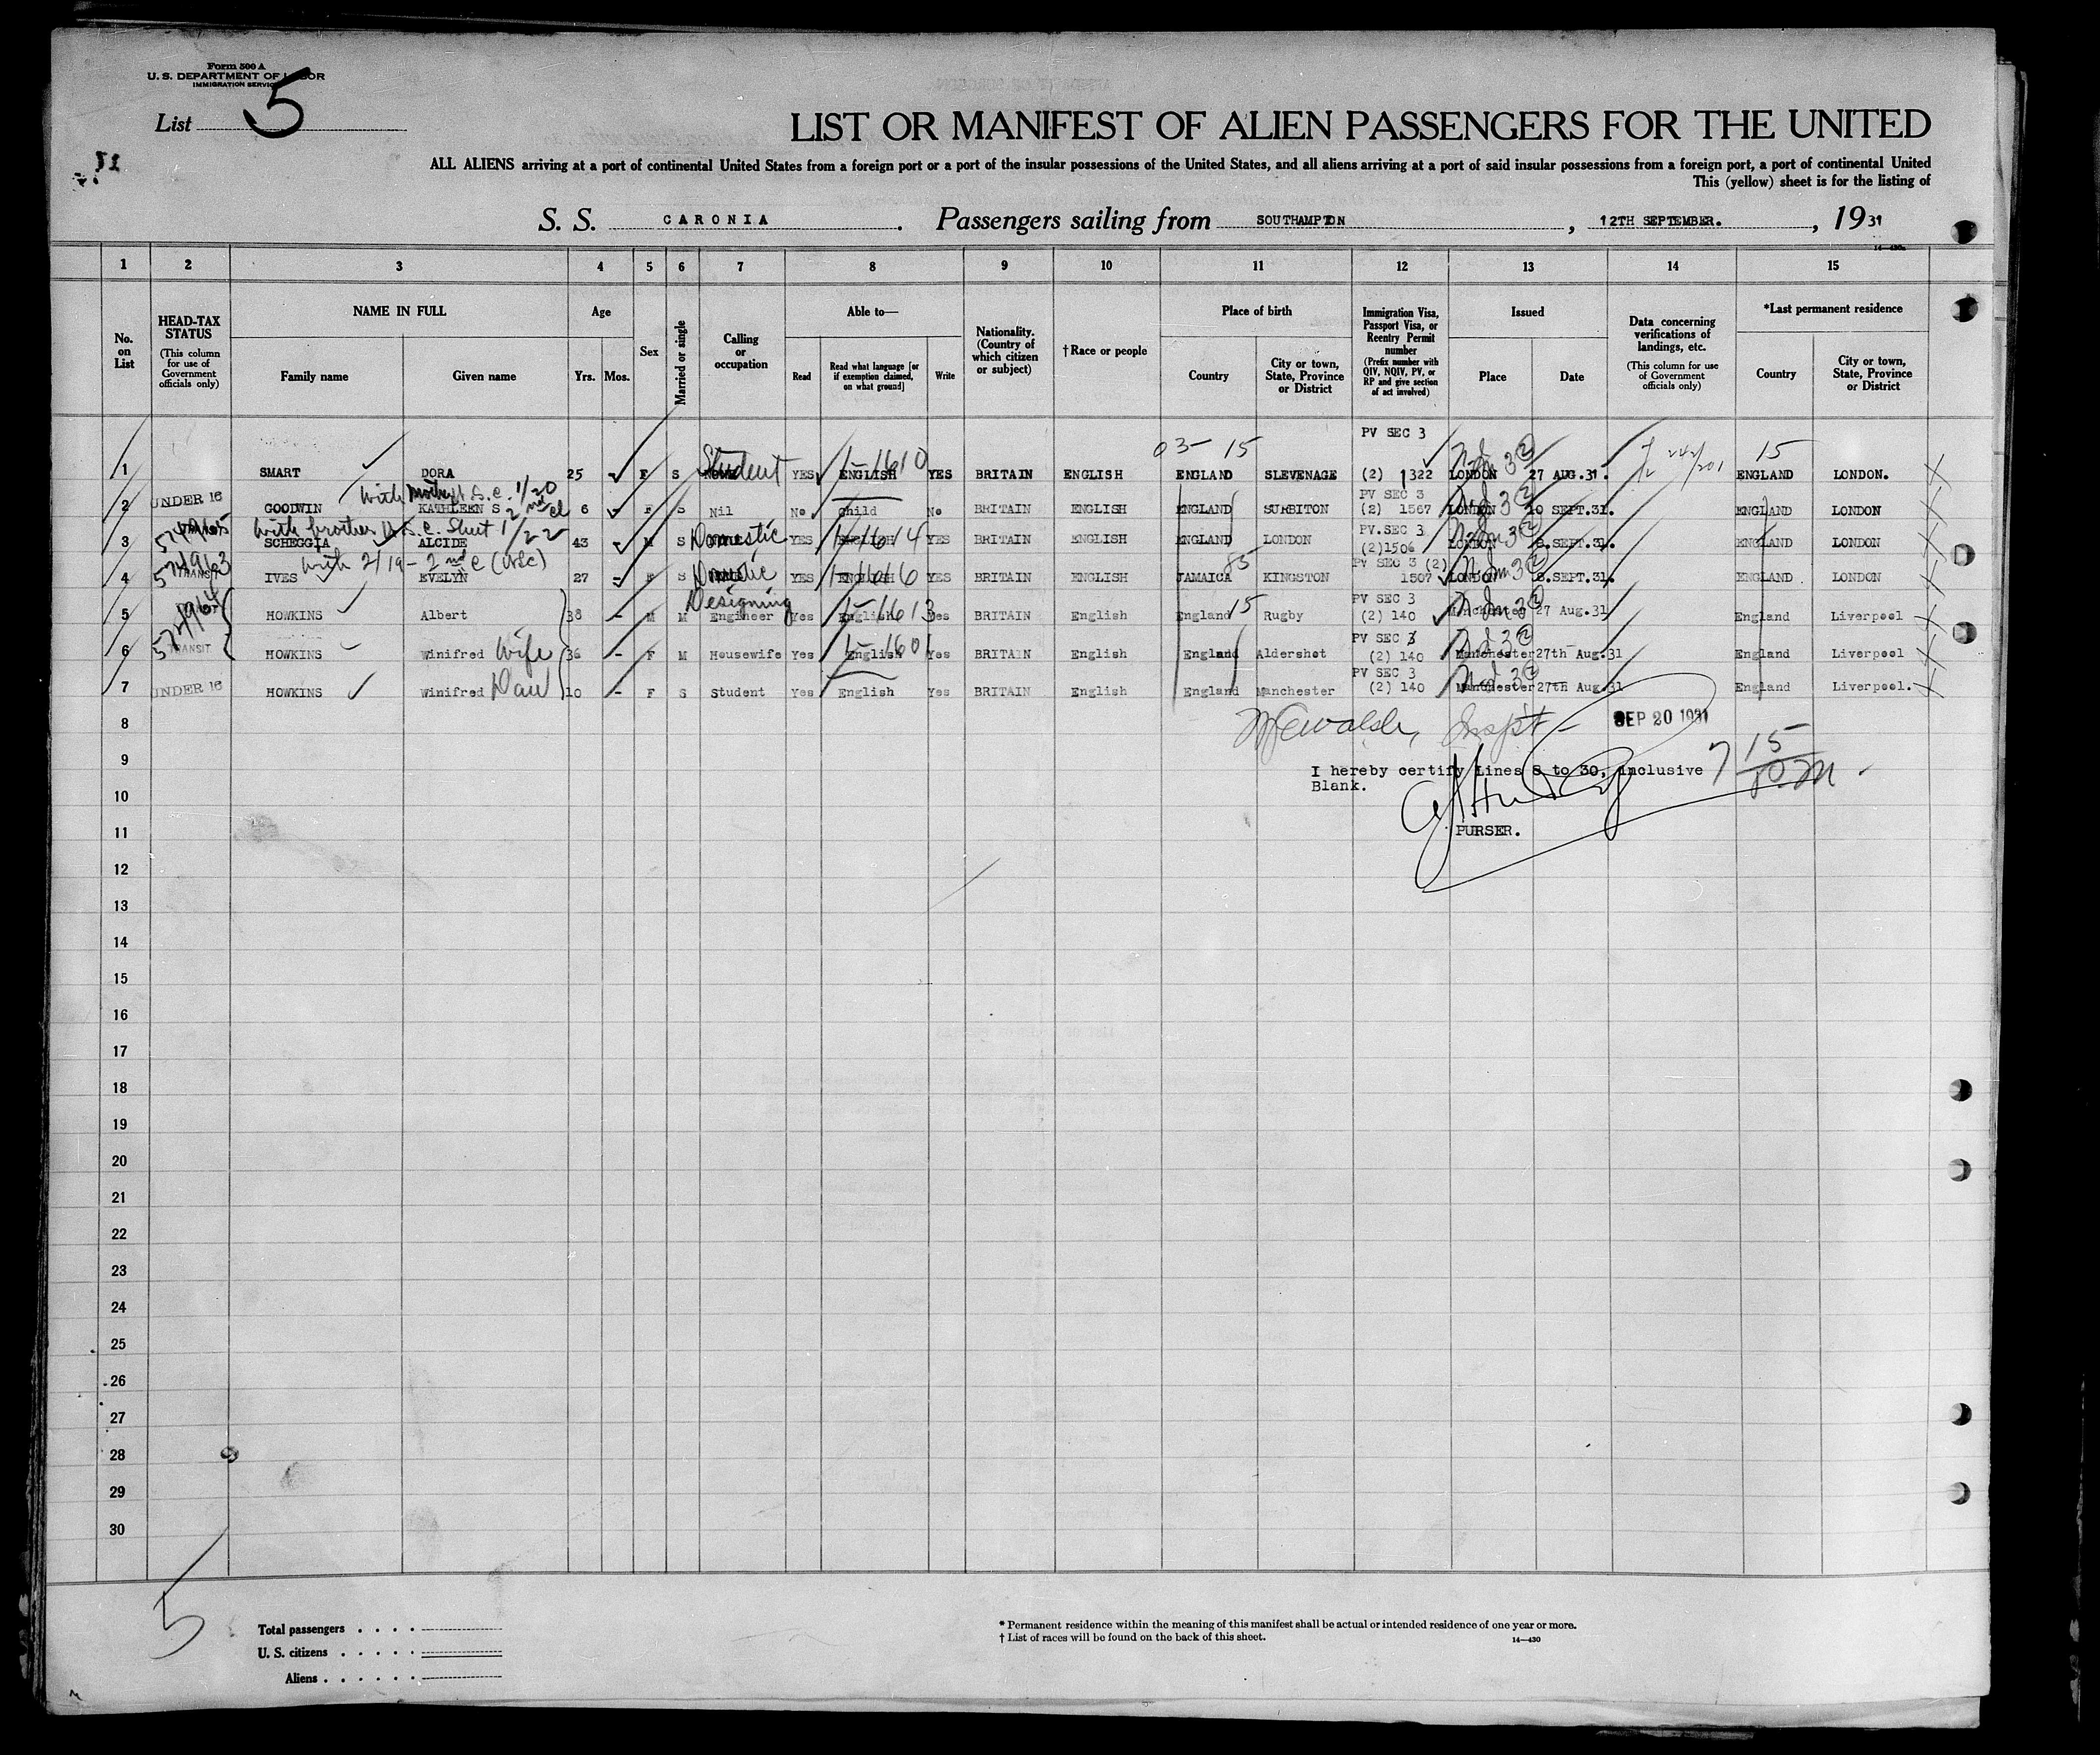 Form 500 A
U. S. DEPARTMENT OF LABOR
IMMIGRATION SERVICE
List 5
LIST OR MANIFEST OF ALIEN PASSENGERS FOR THE UNITED
ALL ALIENS arriving at a port of continental United States from a foreign port or a port of the insular possessions of the United States, and all aliens arriving at a port of said insular possessions from a foreign port, a port of continental United
This (yellow) sheet is for the listing of
S. S. CARONIA. Passengers sailing from SOUTHAMPTON, 12TH SEPTEMBER., 1931
14-430a
1 2 3 4 5 6 7 8 9 10 11 12 13 14 15
No. on List
HEAD-TAX STATUS (This column for use of Government officials only)
NAME IN FULL
Family name
Given name
Age
Yrs. Mos.
Sex
Married or single
Calling or occupation
Able to—
Read
Read what language [or if exemption claimed, on what ground]
Write
Nationality. (Country of which citizen or subject)
†Race or people
Place of birth
Country
City or town, State, Province or District
Immigration Visa, Passport Visa, or Reentry Permit number (Prefix number with QIV, NQIV, PV, or RP and give section of act involved)
Issued
Place
Date
Data concerning verifications of landings, etc. (This column for use of Government officials only)
*Last permanent residence
Country
City or town, State, Province or District
PV SEC 3
03- 15 15
1 SMART DORA 25 F S Student YES ENGLISH 1-1610 YES BRITAIN ENGLISH ENGLAND SLEVENAGE (2) 1322 LONDON 27 AUG.31. ENGLAND LONDON.
with mother U.S.C. 1/20 2nd cl
PV SEC 3
2 UNDER 16 GOODWIN KATHLEEN S 6 F S Nil No Child No BRITAIN ENGLISH ENGLAND SURBITON (2) 1567 LONDON 10 SEPT.31. ENGLAND LONDON
with brother U.S.C. Sheet 1/22
PV.SEC 3
3 SCHEGGIA ALCIDE 43 M S Domestic YES ENGLISH YES BRITAIN ENGLISH ENGLAND LONDON (2)1506 LONDON 8.SEPT.31. ENGLAND LONDON
with 2/19 - 2nd C (USC)
PV SEC 3 (2)
4 TRANSIT IVES EVELYN 27 F S Domestic YES ENGLISH YES BRITAIN ENGLISH JAMAICA KINGSTON 1507 LONDON 8.SEPT.31. ENGLAND LONDON
Designing
PV SEC 3
5 HOWKINS Albert 38 - M M Engineer Yes English 1-1613 Yes BRITAIN English England 15 Rugby (2) 140 Manchester 27 Aug.31 England Liverpool
PV SEC 3
6 TRANSIT HOWKINS Winifred Wife 36 - F M Housewife Yes English 1-1601 Yes BRITAIN English England Aldershot (2) 140 Manchester 27th Aug.31 England Liverpool
PV SEC 3
7 UNDER 16 HOWKINS Winifred Dau 10 - F S Student Yes English Yes BRITAIN English England Manchester (2) 140 Manchester 27th Aug.31 England Liverpool.
8 Inspt SEP 20 1931
9 I hereby certify Lines 8 to 30, inclusive
Blank.
10
11 PURSER.
12
13
14
15
16
17
18
19
20
21
22
23
24
25
26
27
28
29
30
5
Total passengers
U. S. citizens
Aliens
* Permanent residence within the meaning of this manifest shall be actual or intended residence of one year or more.
† List of races will be found on the back of this sheet.
14—430